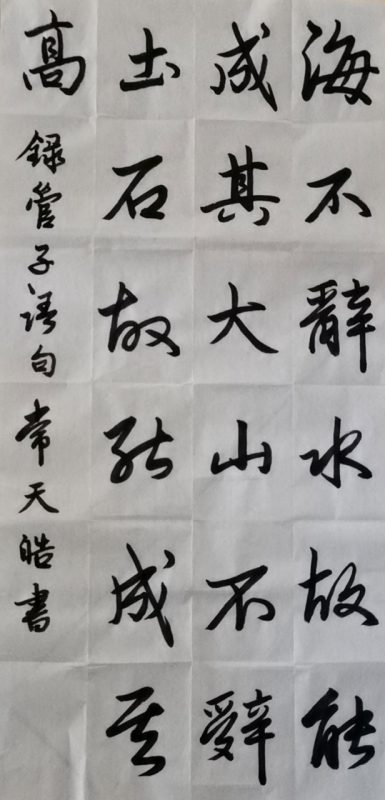 海不辭水故能
成其大山不辤
土石故能成其
高
録管子語句常天皓書